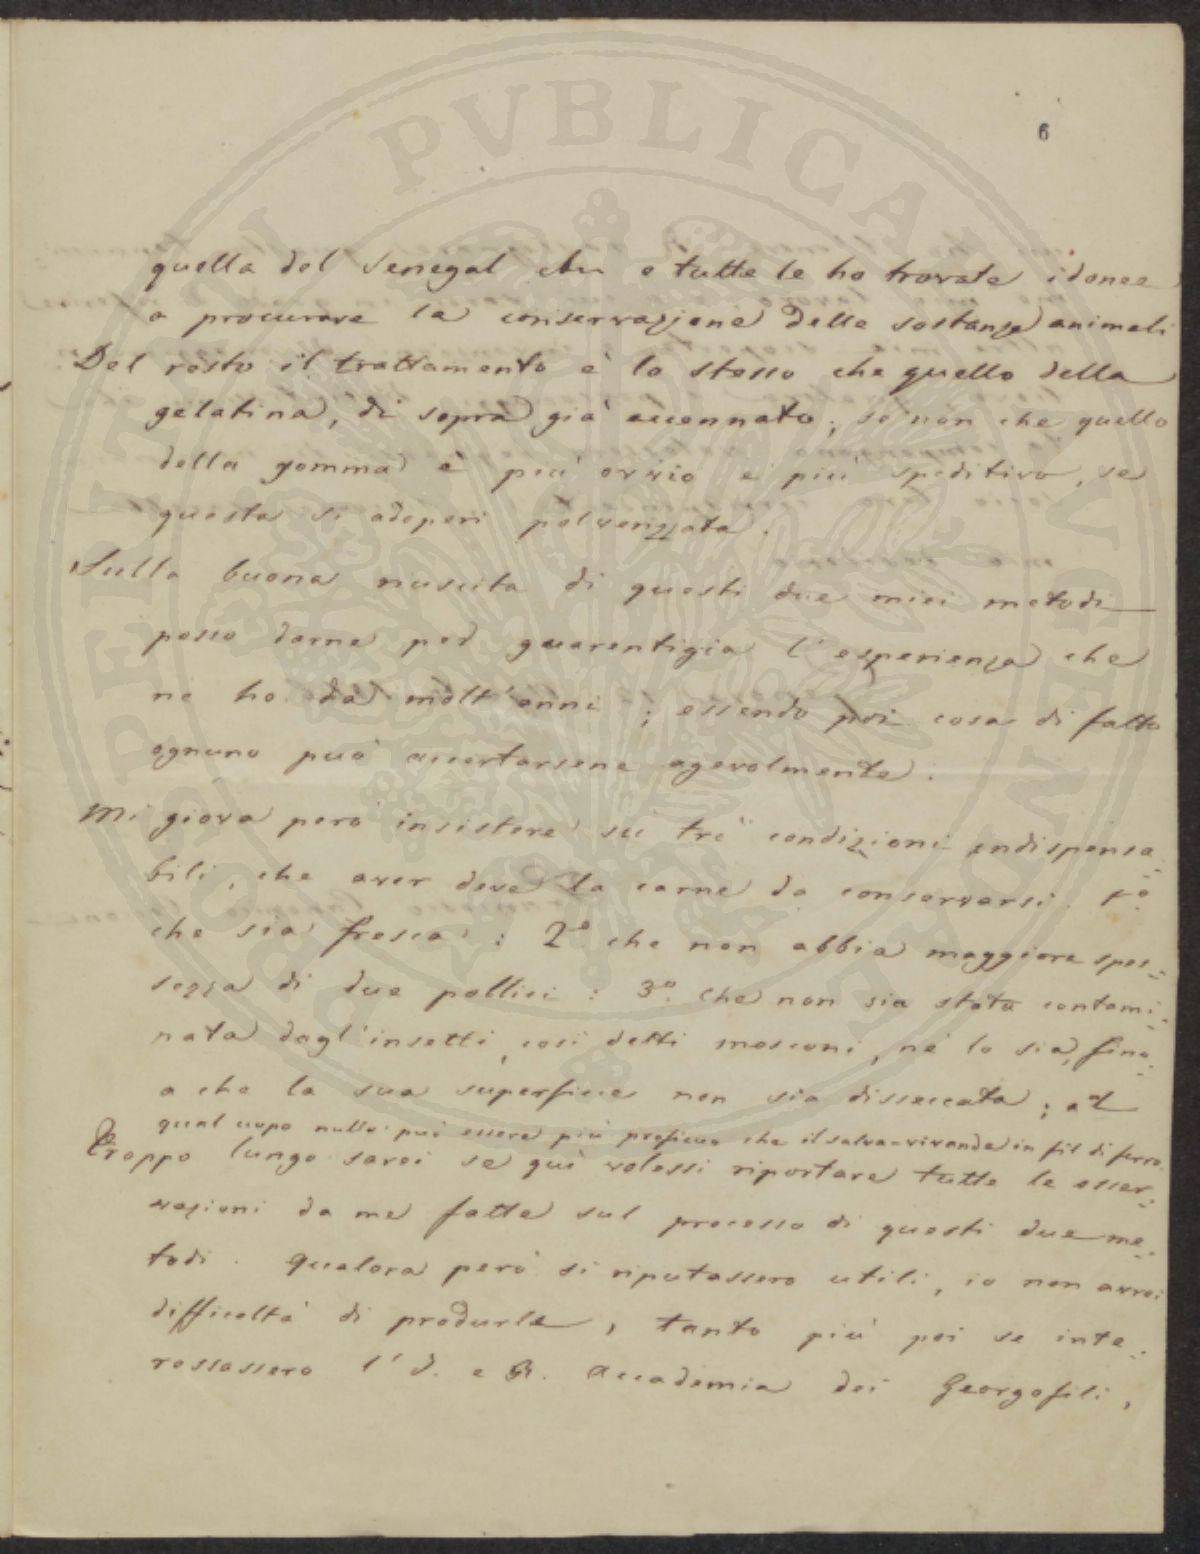 6
quella del Senegal e tutte le ho trovate idonee
a procurare la conservazione delle sostanze animali
Del resto il trattamento è lo stesso che quello della
gelatina, di sopra già accennato; se non che quello
della gomma è più ovvio e più speditivo, se
questa si adoperi polverizzata.
Sulla buona riuscita di questi due miei metodi
posso darne per guarentigia l'esperienza che
ne ho da molt'anni; essendo poi cosa di fatto
ognuno può accertarsene agevolmente.
Mi giova però insistere su trè condizioni indispensa
bili, che aver deve la carne da conservarsi. 1º
che sia fresca: 2º che non abbia maggiore spes-
sezza di due pollici: 3º che non sia stata contami-
nata dagl'insetti, così detti mosconi, nè lo sia, fino
a che la sua superficie non sia disseccata; al
qual uopo nulla può essere più proficuo che il salva-vivande in fil di ferro
Troppo lungo sarei se quì volessi riportare tutte le osser-
vazioni da me fatte sul processo di questi due me-
todi. Qualora però si riputassero utili, io non avrei
difficoltà di produrle, tanto più poi se inte-
ressassero l'I. e R. Accademia dei Georgofili,